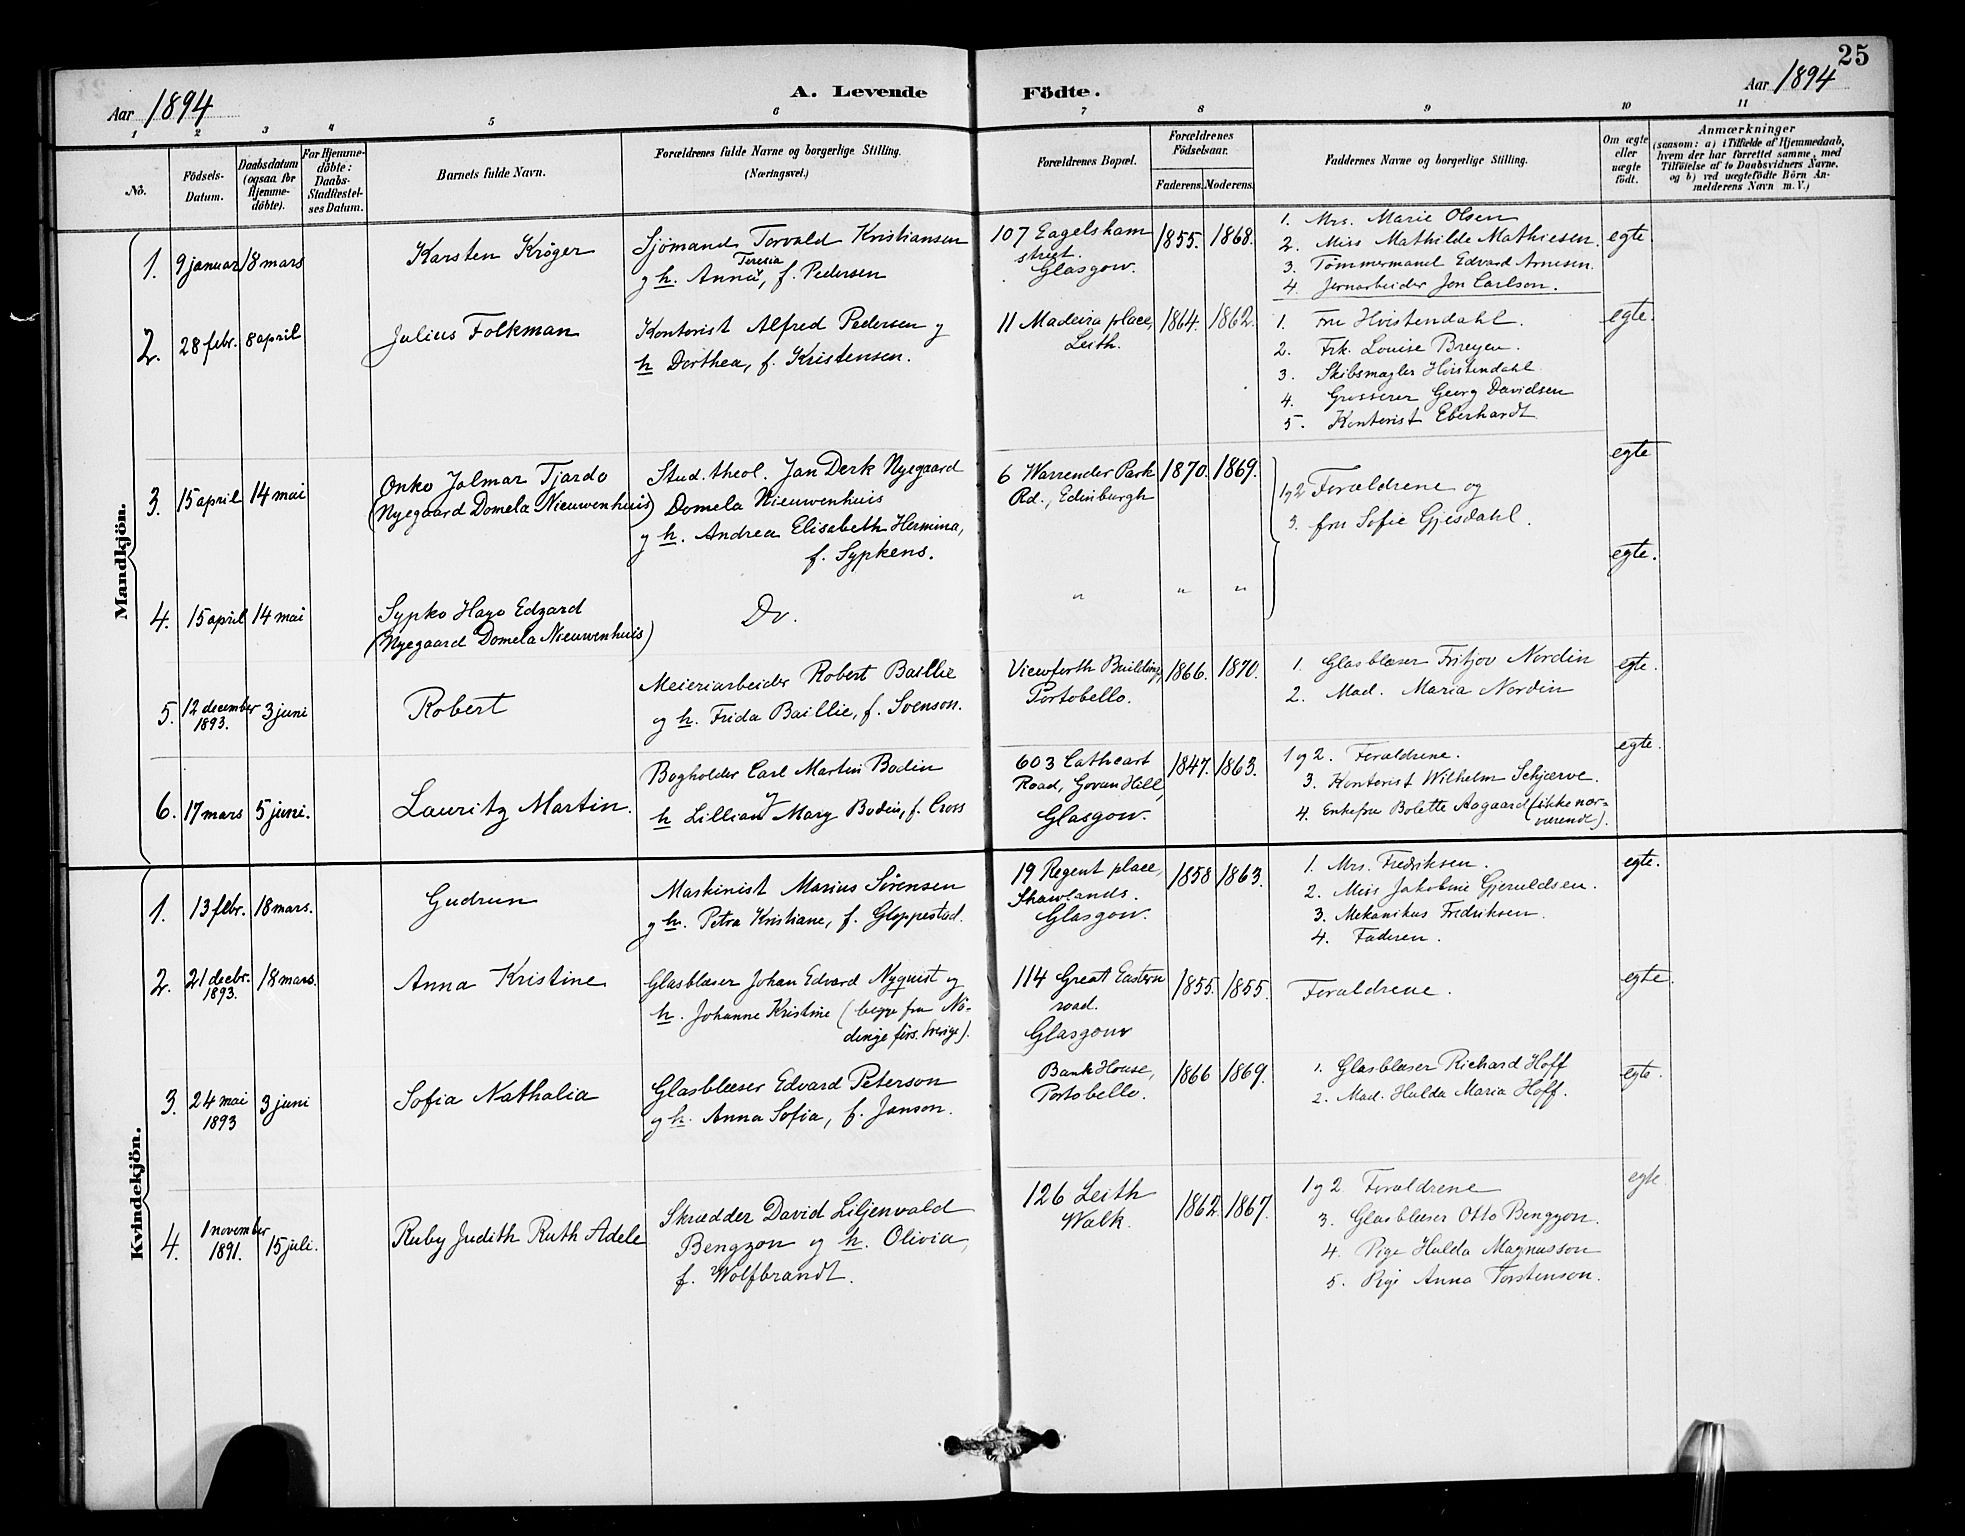 25
Aar 1894
A. Levende Födte.
Aar 1894
1 2 3 4 5 6 7 8 9 10 11
No.
Födsels-Datum.
Daabsdatum (ogsaa for Hjemme-döbte).
For Hjemme-döbte: Daabs-Stadfæstel-ses Datum.
Barnets fulde Navn.
Forældrenes fulde Navne og borgerlige Stilling. (Næringsvei.)
Forældrenes Bopæl.
Forældrenes Födselsaar.
Faderens. Moderens.
Faddernes Navne og borgerlige Stilling.
Om ægte eller uægte födt.
Anmærkninger
(saasom: a) i Tilfælde af Hjemmedaab, hvem der har forrettet samme, med Tilföielse af to Daabsvidners Navne. og b) ved uægtefödte Börn An-melderens Navn m. V.)
Mandkjön.
1. 9 januar 18 mars Karsten Kröger
Sjömand Torvald Kristiansen
Teresia
og h. Anna, f. Pedersen
107 Eagelsham
street.
Glasgow.
1855. 1868.
1. Mrs. Marie Olsen
2. Miss Mathilde Mathiesen.
3. Tömmermand Edvard Arnesen.
4. Jernarbeider Jon Carlson.
egte.
2. 28 febr. 8 april Julius Folkman
Kontorist Alfred Pedersen og
h Dorthea, f. Kristensen.
11 Madeira place,
Leith.
1864. 1862.
1. Fru Hvistendahl.
2. Frk. Louise Breyen.
3. Skibsmægler Hvistendahl.
4. Grosserer Georg Davidsen
5. Kontorist Eberhardt
egte.
3. 15 april 14 mai Onko Jalmar Tjardo
(Nyegaard Domela Nieuwenhuis)
Stud. theol. Jan Derk Nyegaard
Domela Nieuwenhuis
og h. Andrea Elisabeth Hermina,
f. Sypkens.
6 Warrender Park
Rd., Edinburgh
1870. 1869.
1 og 2 Forældrene og
3. fru Sofie Gjesdahl.
egte
4. 15 april 14 mai Sypko Hayo Edzard
(Nyegaard Domela Nieuwenhuis)
Do.
" " "
egte.
5. 12 december 1893. 3 juni Robert
Meieriarbeider Robert Baillie
og h. Frida Baillie, f. Svenson.
Viewforth Building,
Portobello.
1866. 1870.
1. Glasblæser Fritjov Nordin
2. Mad. Maria Nordin
egte.
6. 17 mars 5 juni. Lauritz Martin.
Bogholder Carl Martin Bodin
og
h Lillian Mary Bodin, f. Cross
603 Cathcart
Road, Govan Hill,
Glasgow.
1847. 1863.
1 og 2. Forældrene.
3. Kontorist Wilhelm Schjærve.
4. Enkefru Bolette Aagaard (ikke nær-
værende).
egte.
Kvindekjön.
1. 13 febr. 18 mars. Gudrun
Maskinist Marius Sörensen
og h. Petra Kristiane, f. Gloppestad.
19 Regent place,
Shawlands.
Glasgow.
1858 1863.
1. Mrs. Fredriksen.
2. Miss Jakobine Gjeruldsen.
3. Mekanikus Fredriksen.
4. Faderen.
egte.
2. 21 decbr. 1893. 18 mars. Anna Kristine
Glasblæser Johan Edvard Nyquist og
h. Johanne Kristine (begge fra Nö-
dinge förs. Sverige).
114 Great Eastern
road.
Glasgow
1855. 1855.
Forældrene.
egte.
3. 24 mai 1893 3 juni Sofia Nathalia
Glasblæser Edvard Peterson
og h. Anna Sofia, f. Janson.
Bank House,
Portobello.
1866 1869.
1. Glasblæser Richard Hoff
2. Mad. Hulda Maria Hoff.
egte.
4. 1 november 1891. 15 juli. Ruby Judith Ruth Adele
Skrædder David Liljenvald
Bengzon og h. Olivia,
f. Wolfbrandt.
126 Leith
Walk.
1862. 1867.
1 og 2 Forældrene
3. Glasblæser Otto Bengzon.
4. Pige Hulda Magnusson
5. Pige Anna Torstenson.
egte.